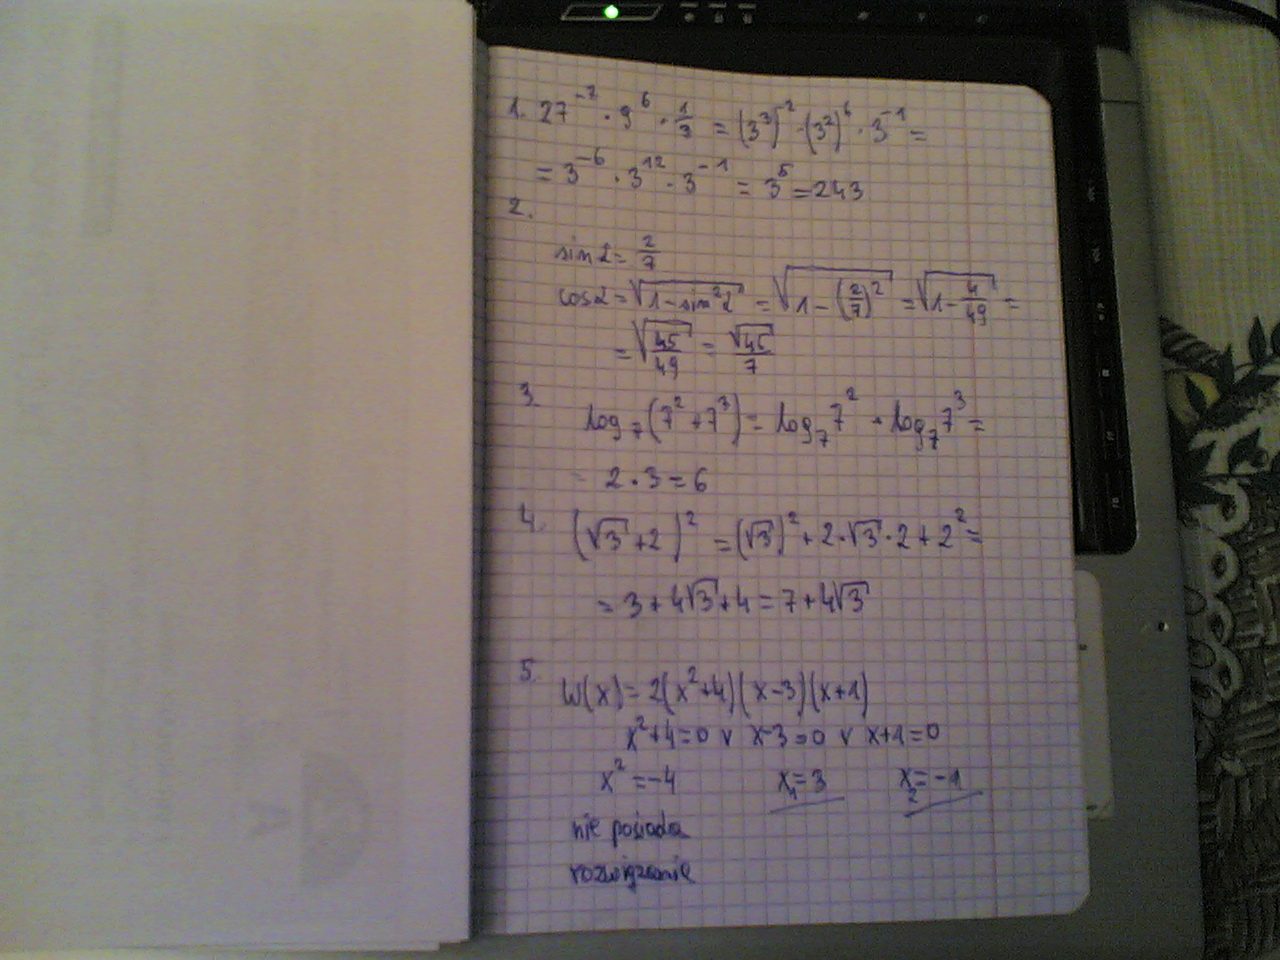 1. 27^-2 · 9^6 · 1/3 = (3^3)^-2 · (3^2)^6 · 3^-1 =
= 3^-6 · 3^12 · 3^-1 = 3^5 = 243
2.
sin α = 2/7
cos α = √(1-sin²α) = √(1-(2/7)²) = √(1-4/49) =
= √(45/49) = √45/7
3. log₇(7²+7³) = log₇7² · log₇7³ =
= 2·3=6
4. (√3+2)² = (√3)²+2·√3·2+2² =
= 3+4√3+4=7+4√3
5. W(x)=2(x²+4)(x-3)(x+1)
x²+4=0 v x-3=0 v x+1=0
x²=-4 x₁=3 x₂=-1
nie posiada
rozwiązania